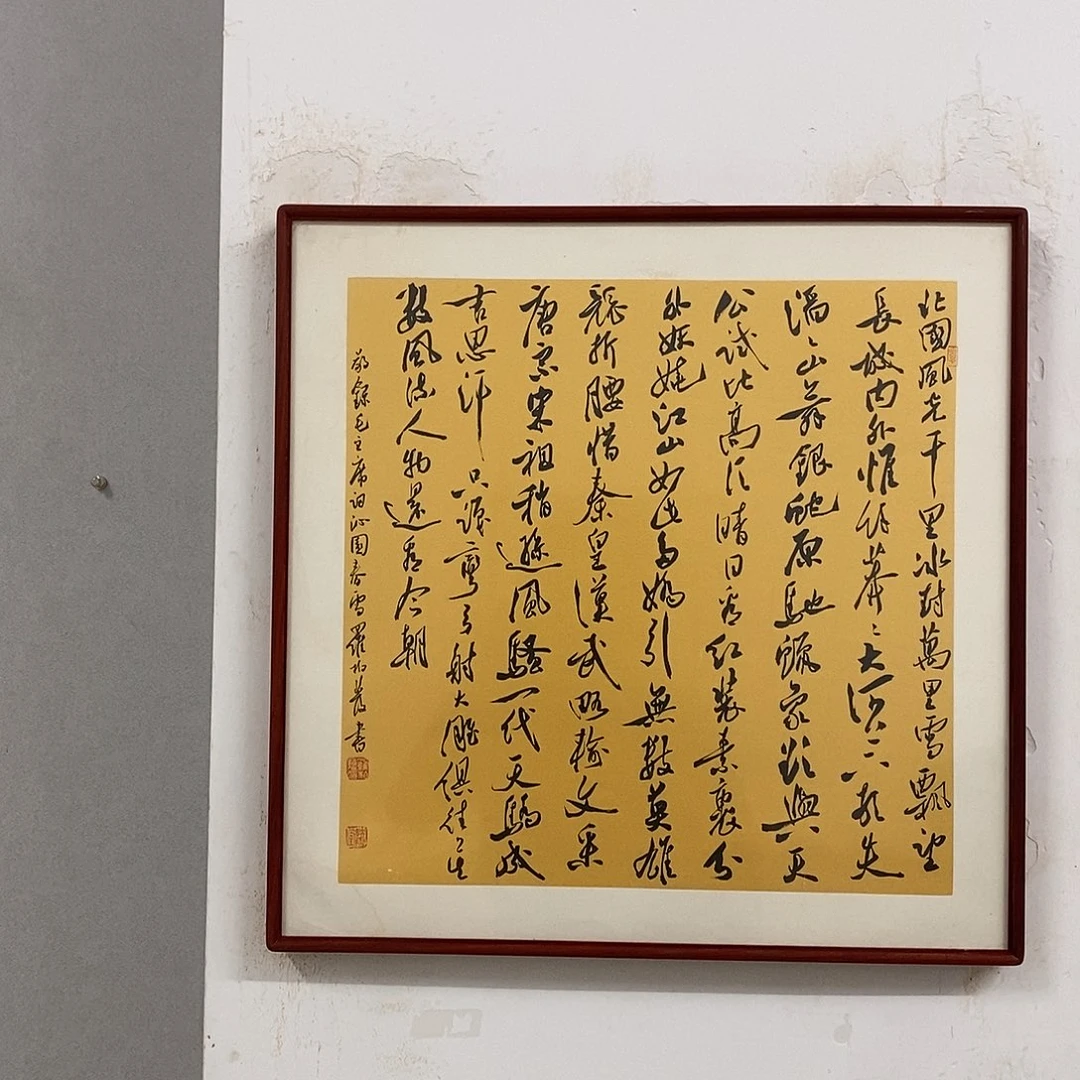 北國風光千里冰封萬里雪飄望
長城内外惟餘莽〻大河上下頓失
滔〻山舞銀蛇原馳蠟象欲與天
公試比高須晴日看紅裝素裹分
外妖嬈江山如此多嬌引無數英雄
競折腰惜秦皇漢武略輸文采
唐宗宋祖稍遜風騷一代天驕成
吉思汗只識彎弓射大雕俱往矣
數風流人物還看今朝
敬錄毛主席詞沁園春雪羅書